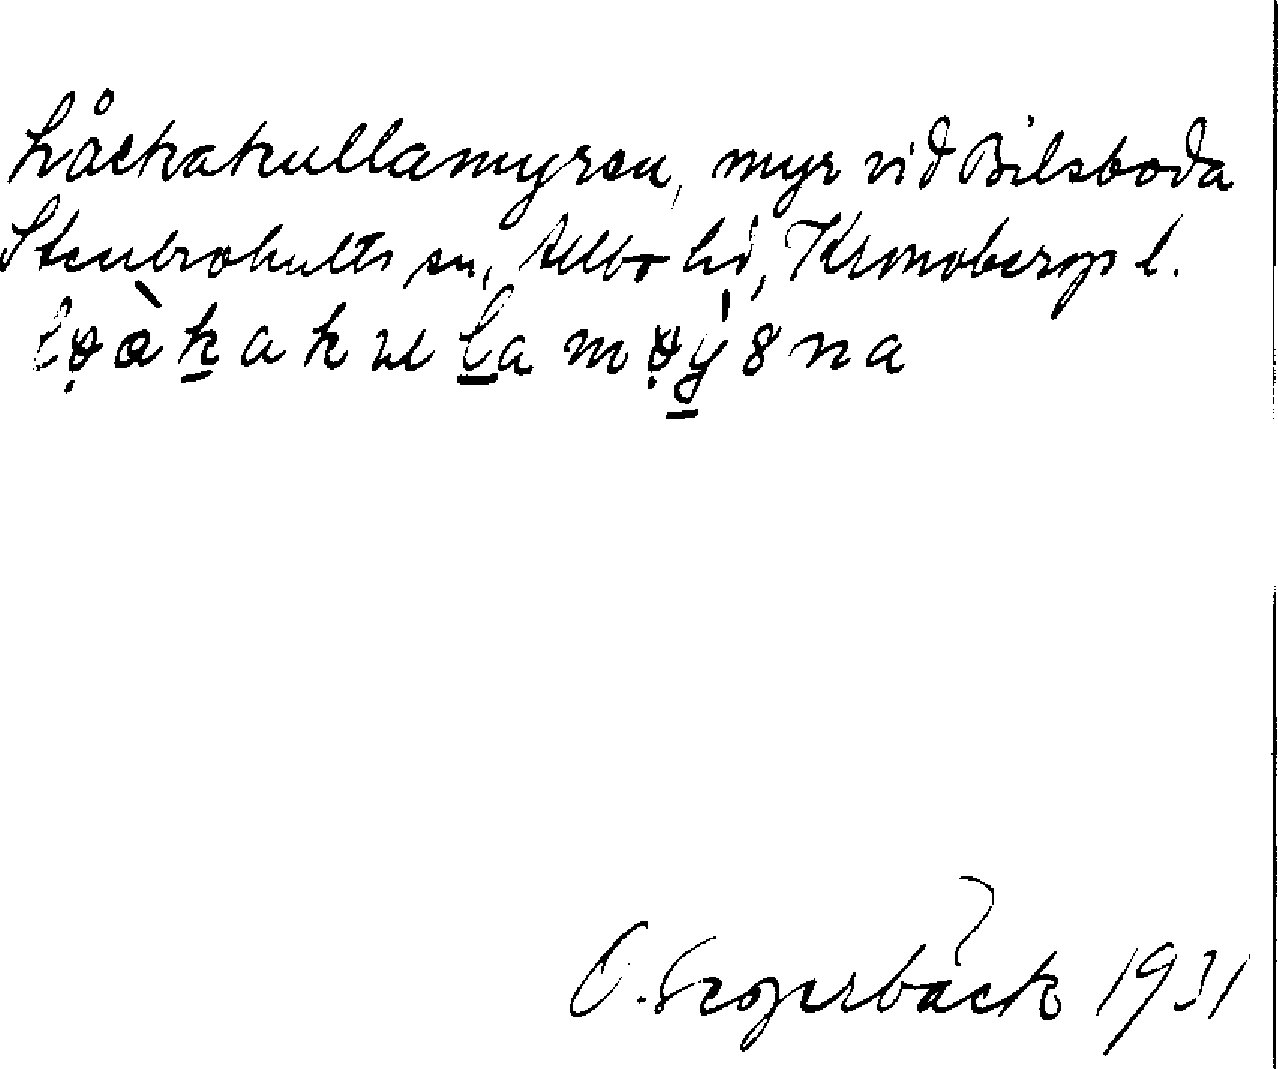 Låckakullamyren, myr vid Bilsboda
Stenbrohults sn, Allbo hd, Kronobergs l.
O. Segerbäck 1931